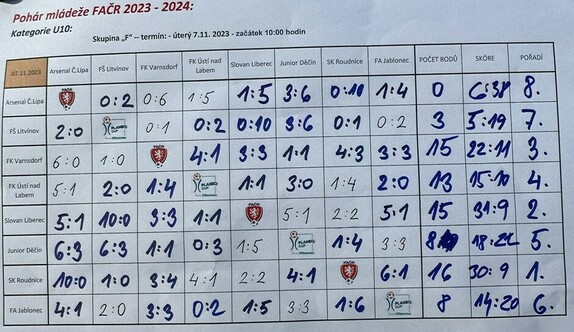 Pohár mládeže FAČR 2023 - 2024:
Kategorie U10:
Skupina „F" – termín: - úterý 7.11. 2023 - začátek 10:00 hodin
07.11.2023 Arsenal Č.Lípa FŠ Litvínov FK Varnsdorf FK Ústí nad Labem Slovan Liberec Junior Děčín SK Roudnice FA Jablonec POČET BODŮ SKÓRE POŘADÍ
Arsenal Č.Lípa 0:2 0:6 1:5 1:5 3:6 0:10 1:4 0 6:38 8.
FŠ Litvínov 2:0 PLANEO CUP 0:1 0:2 0:10 3:6 0:1 0:2 3 5:19 7.
FK Varnsdorf 6:0 1:0 4:1 3:3 1:1 4:3 3:3 15 22:11 3.
FK Ústí nad Labem 5:1 2:0 1:4 PLANEO CUP 1:1 3:0 1:4 2:0 13 15:10 4.
Slovan Liberec 5:1 10:0 3:3 1:1 5:1 2:2 5:1 15 31:9 2.
Junior Děčín 6:3 6:3 1:1 0:3 1:5 PLANEO CUP 1:4 3:3 8 18:22 5.
SK Roudnice 10:0 1:0 3:4 4:1 2:2 4:1 6:1 16 30:9 1.
FA Jablonec 4:1 2:0 3:3 0:2 1:5 3:3 1:6 PLANEO CUP 8 14:20 6.